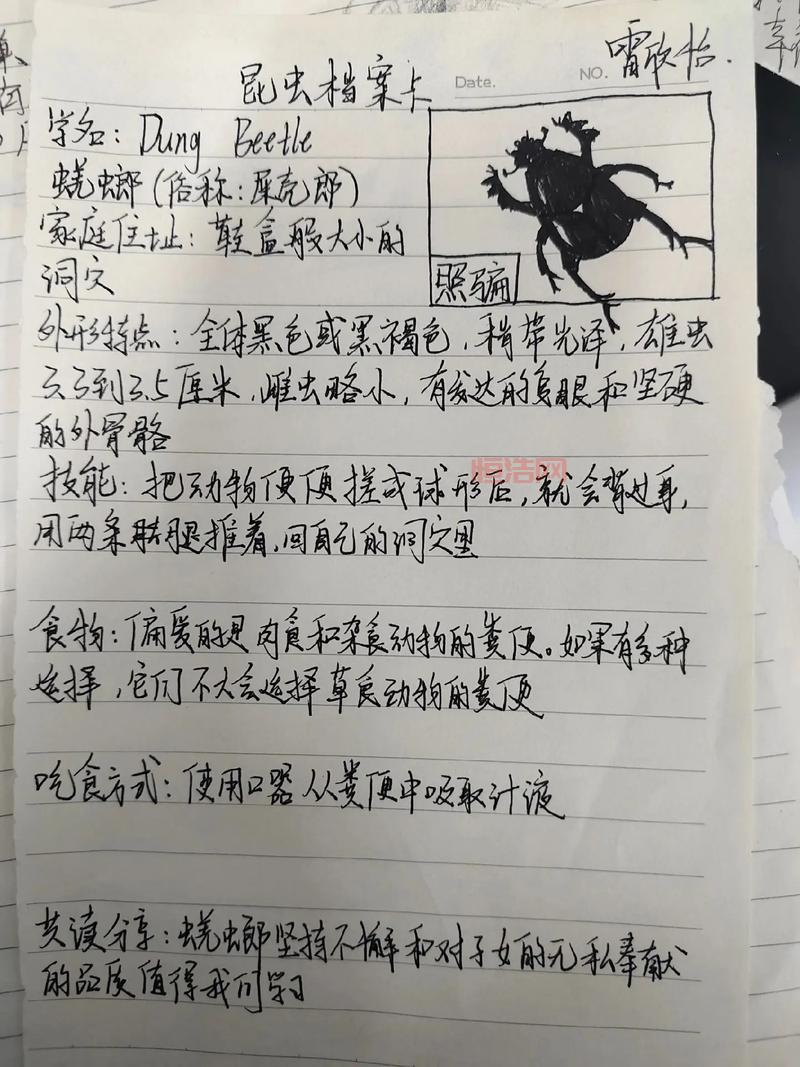 雷欣怡.
昆虫档案卡
Date.
NO.
学名：Dung Beetle
蜣螂(俗称：屎克郎)
家庭住址：鞋盒般大小的
洞穴
照骗
外形特点：全体黑色或黑褐色，稍带光泽，雄虫
3.3到3.5厘米，雌虫略小，有发达的复眼和坚硬
的外骨骼
恒浩网
技能：把动物便便搓成球形后，就会背过身，
用两条后腿推着，回自己的洞穴里
食物：偏爱的是肉食和杂食动物的粪便。如果有多种
选择，它们不大会选择草食动物的粪便
吃食方式：使用口器从粪便中吸取汁液
共读分享：蜣螂坚持不懈和对子女的无私奉献
的品质值得我们学习